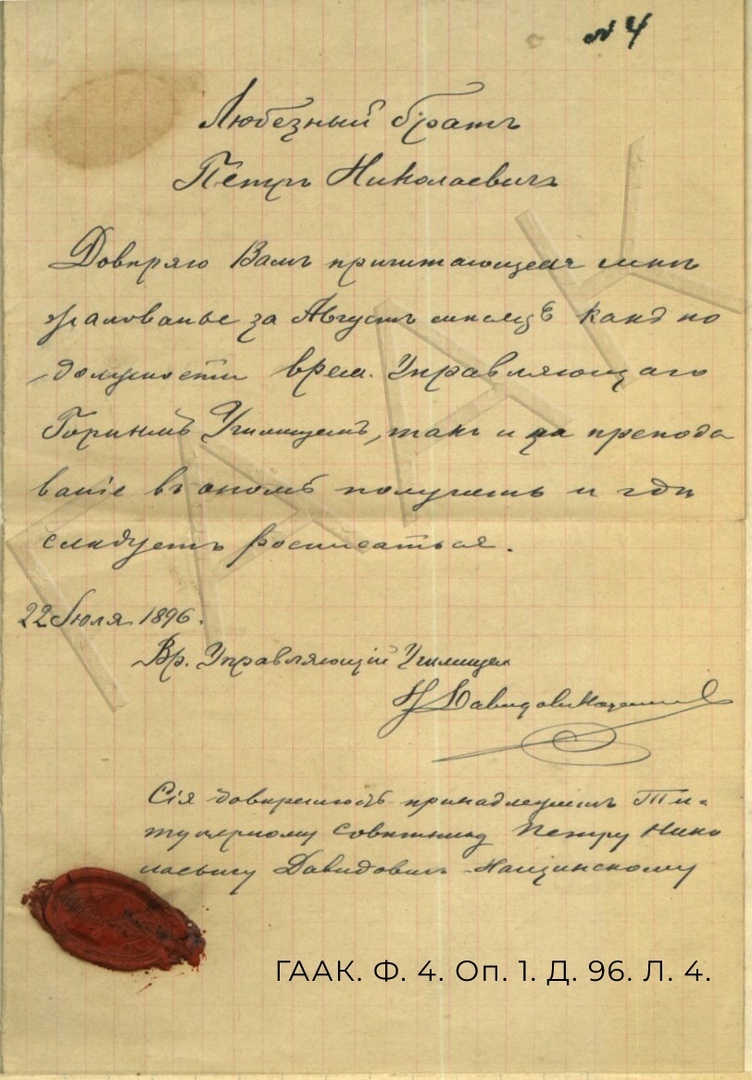 № 4
Любезный братъ
Петръ Николаевичъ
Довѣряю Вамъ причитающееся мнѣ
жалованье за Августъ мѣсяцъ какъ по
должности врем. Управляющаго
Горнымъ Училищемъ, такъ и за препода
ваніе въ ономъ получить и гдѣ
слѣдуетъ росписаться.
22 Іюля 1896.
Вр. Управляющій Училищемъ
Давидовичъ
Сія довѣренность принадлежитъ Ти-
тулярному Совѣтнику Петру Нико
лаевичу Давидовичъ-Нащинскому
ГААК
ГААК. Ф. 4. Оп. 1. Д. 96. Л. 4.